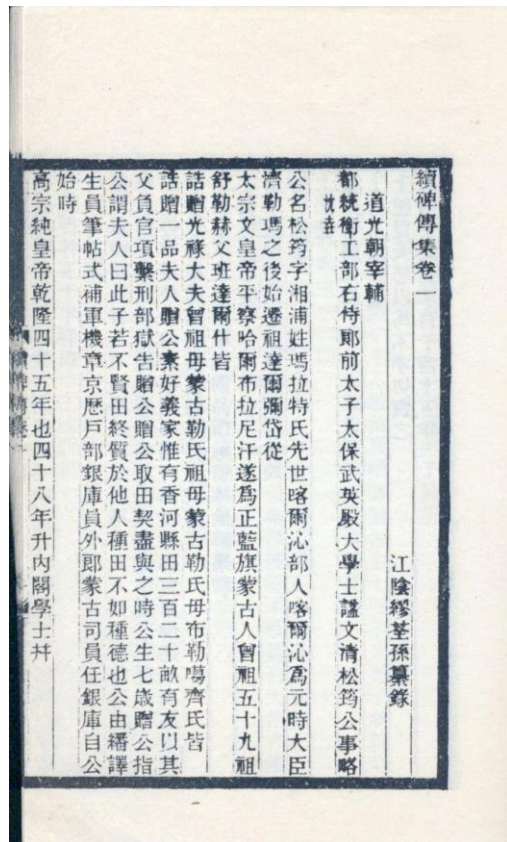 續碑傳集卷一
江陰繆荃孫纂錄
道光朝宰輔
都統銜工部右侍郎前太子太保武英殿大學士諡文清松筠公事略
公名松筠字湘浦姓瑪拉特氏先世喀爾沁部人喀爾沁爲元時大臣
濟勒瑪之後始遷祖達爾彌岱從
太宗文皇帝平察哈爾布拉尼汗遂爲正藍旗蒙古人曾祖五十九祖
舒勒赫父班達爾什皆
誥贈光祿大夫曾祖母蒙古勒氏祖母蒙古勒氏母布勒噶齊氏皆
誥贈一品夫人贈公素好義家惟有香河縣田三百二十畝有友以其
父負官項繫刑部獄告贈公贈公取田契盡與之時公生七歲贈公指
公謂夫人曰此子若不賢田終質於他人種田不如種德也公由繙譯
生員筆帖式補軍機章京歷戶部銀庫員外郎蒙古司員任銀庫自公
始時
高宗純皇帝乾隆四十五年也四十八年升內閣學士幷